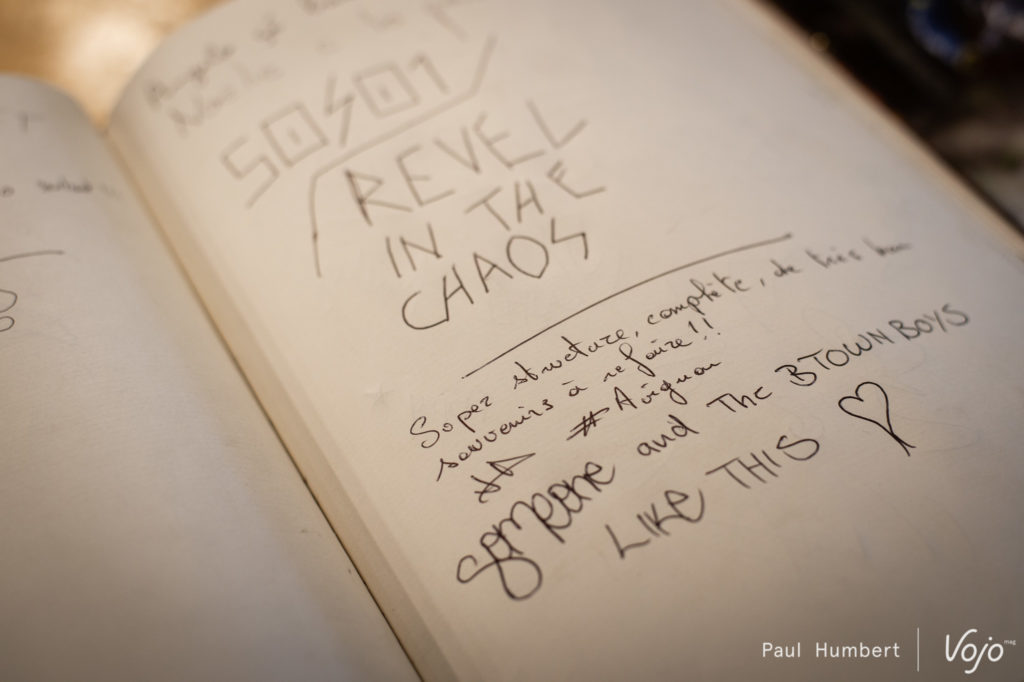 Angele et
SOSO1
REVEL
IN THE
CHAOS
Super structure, complète, de très bon
souvenirs à refaire!!
#Avignon
someone and The BTOWNBOYS
LIKE THIS
Paul Humbert
Vojo mag